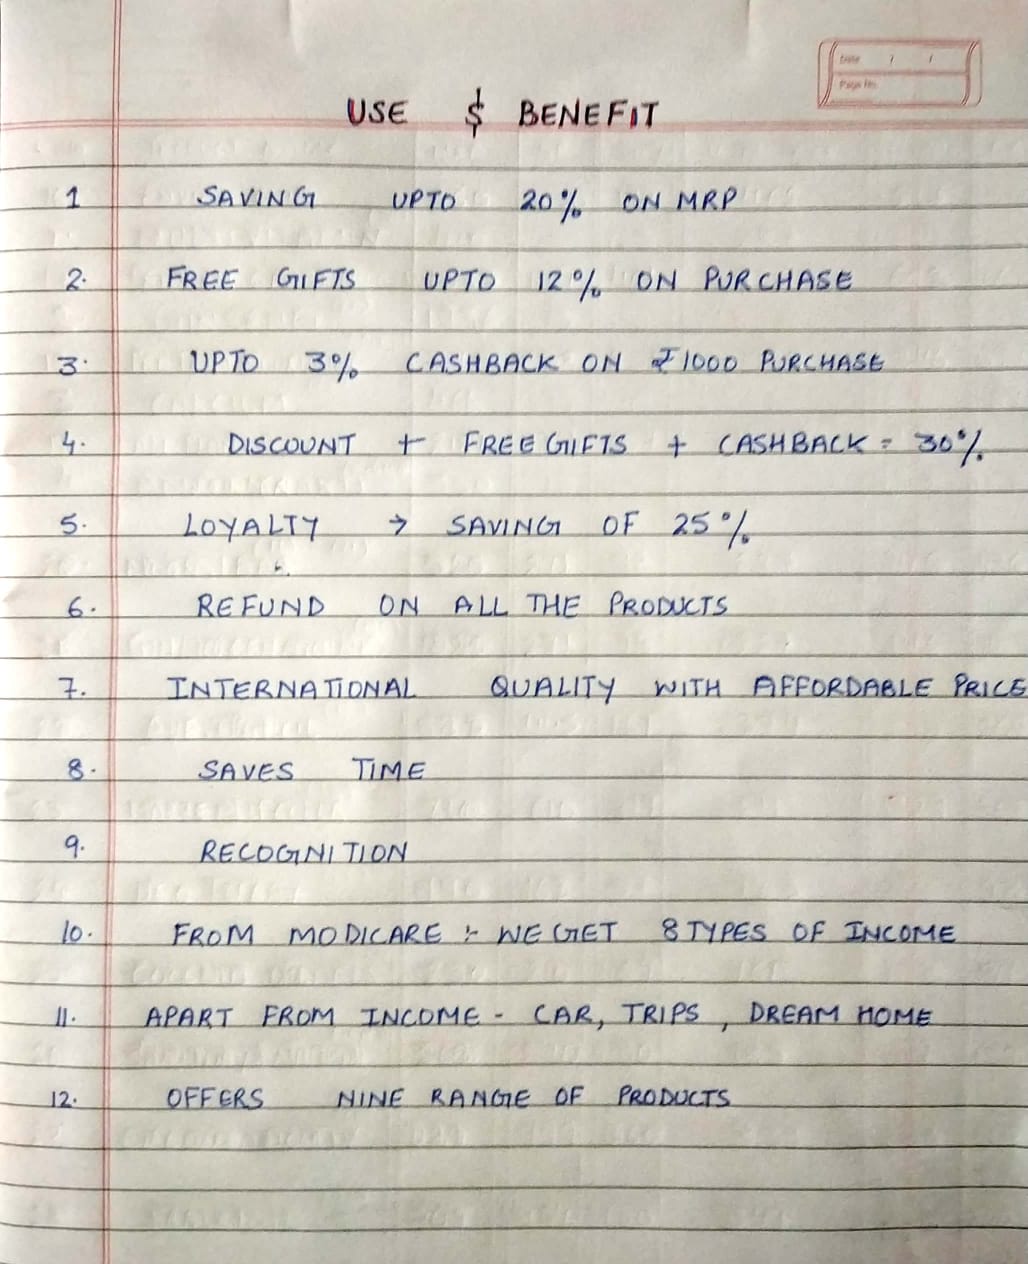 Date / /
Page No.
USE $ BENEFIT
1 SAVING UPTO 20% ON MRP
2. FREE GIFTS UPTO 12% ON PURCHASE
3. UPTO 3% CASHBACK ON ₹1000 PURCHASE
4. DISCOUNT + FREE GIFTS + CASHBACK = 30%
5. LOYALTY → SAVING OF 25%
6. REFUND ON ALL THE PRODUCTS
7. INTERNATIONAL QUALITY WITH AFFORDABLE PRICE
8. SAVES TIME
9. RECOGNITION
10. FROM MODICARE :- WE GET 8 TYPES OF INCOME
11. APART FROM INCOME - CAR, TRIPS, DREAM HOME
12. OFFERS NINE RANGE OF PRODUCTS